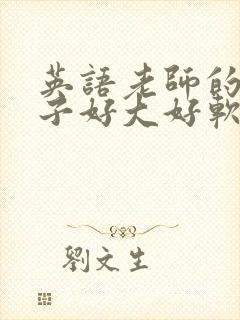 英語老師的
子好大好軟
劉文生